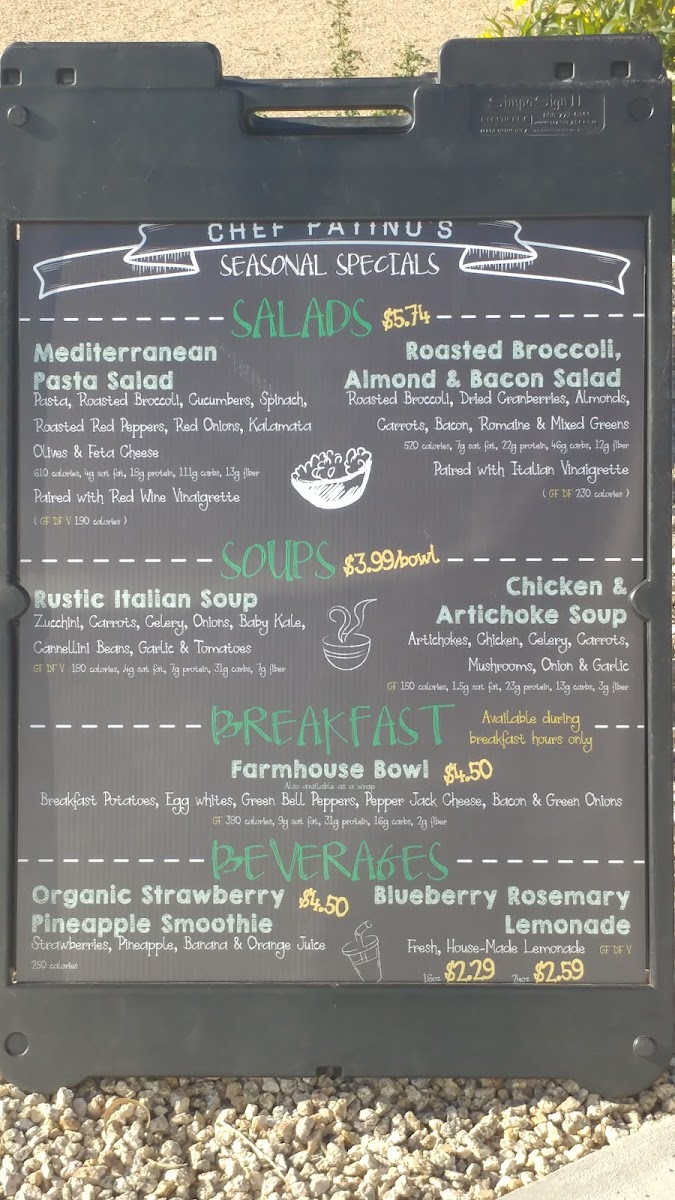 CHEF PATINO'S
SEASONAL SPECIALS
SALADS $5.74
Mediterranean
Pasta Salad
Pasta, Roasted Broccoli, Cucumbers, Spinach,
Roasted Red Peppers, Red Onions, Kalamata
Olives & Feta Cheese
610 calories, 4g sat fat, 18g protein, 111g carbs, 13g fiber
Paired with Red Wine Vinaigrette
( GF DF V 190 calories )
Roasted Broccoli,
Almond & Bacon Salad
Roasted Broccoli, Dried Cranberries, Almonds,
Carrots, Bacon, Romaine & Mixed Greens
520 calories, 7g sat fat, 22g protein, 46g carbs, 12g fiber
Paired with Italian Vinaigrette
( GF DF 230 calories )
SOUPS $3.99/bowl
Rustic Italian Soup
Zucchini, Carrots, Celery, Onions, Baby Kale,
Cannellini Beans, Garlic & Tomatoes
GF DF V 180 calories, .4g sat fat, 7g protein, 31g carbs, 7g fiber
Chicken &
Artichoke Soup
Artichokes, Chicken, Celery, Carrots,
Mushrooms, Onion & Garlic
GF 150 calories, 1.5g sat fat, 23g protein, 13g carbs, 3g fiber
BREAKFAST
Available during
breakfast hours only
Farmhouse Bowl $4.50
Also available as a wrap
Breakfast Potatoes, Egg whites, Green Bell Peppers, Pepper Jack Cheese, Bacon & Green Onions
GF 390 calories, 9g sat fat, 31g protein, 16g carbs, 2g fiber
BEVERAGES
Organic Strawberry $4.50
Pineapple Smoothie
Strawberries, Pineapple, Banana & Orange Juice
250 calories
Blueberry Rosemary
Lemonade
Fresh, House-Made Lemonade GF DF V
16oz $2.29 24oz $2.59